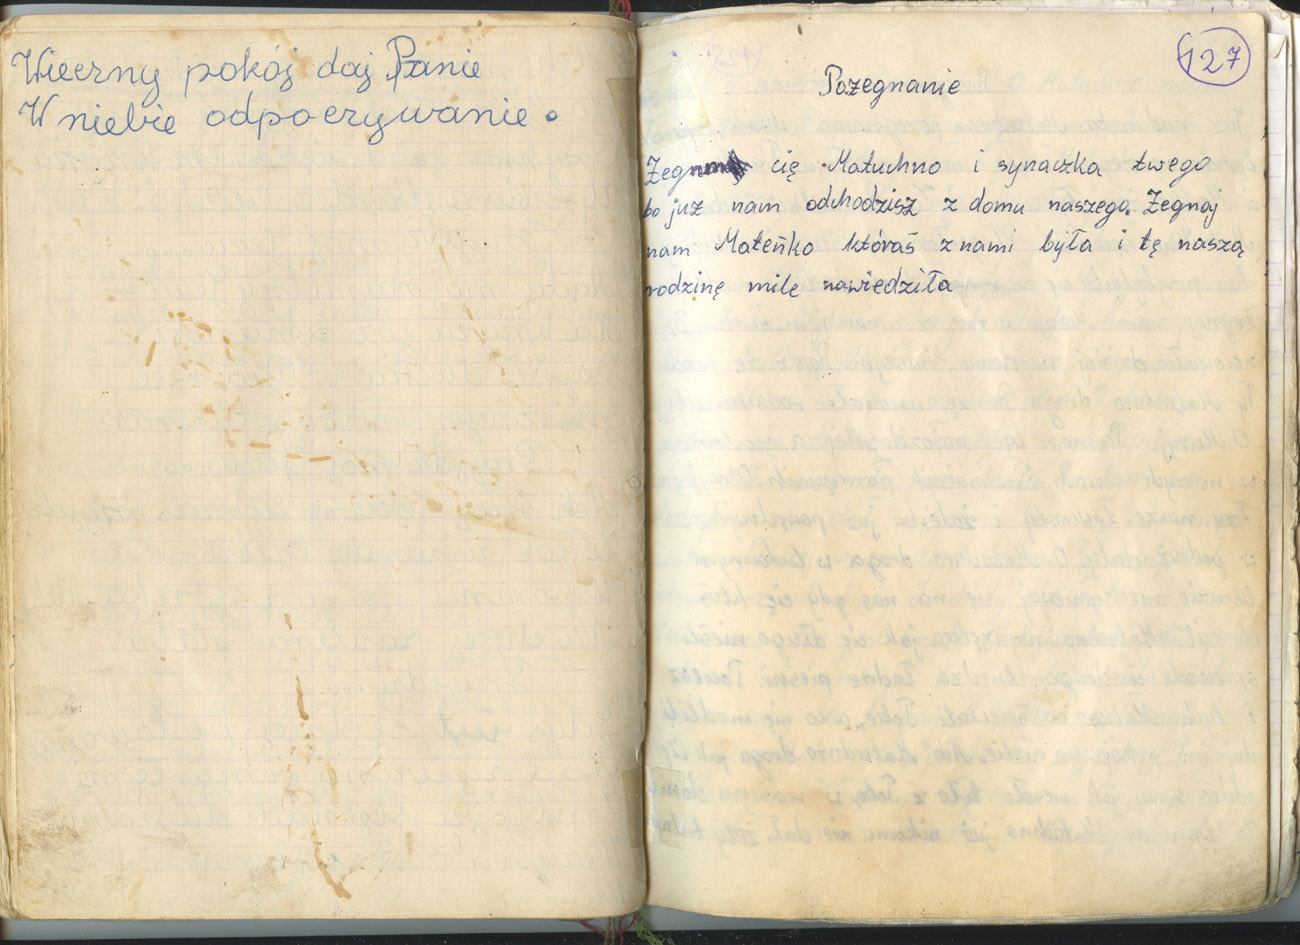 Wieczny pokój daj Panie
W niebie odpoczywanie.
127
Pożegnanie
Żegnamy cię Matuchno i synaczka twego
bo już nam odchodzisz z domu naszego. Żegnaj
nam Mateńko któraś z nami była i tę naszą
rodzinę mile nawiedziła